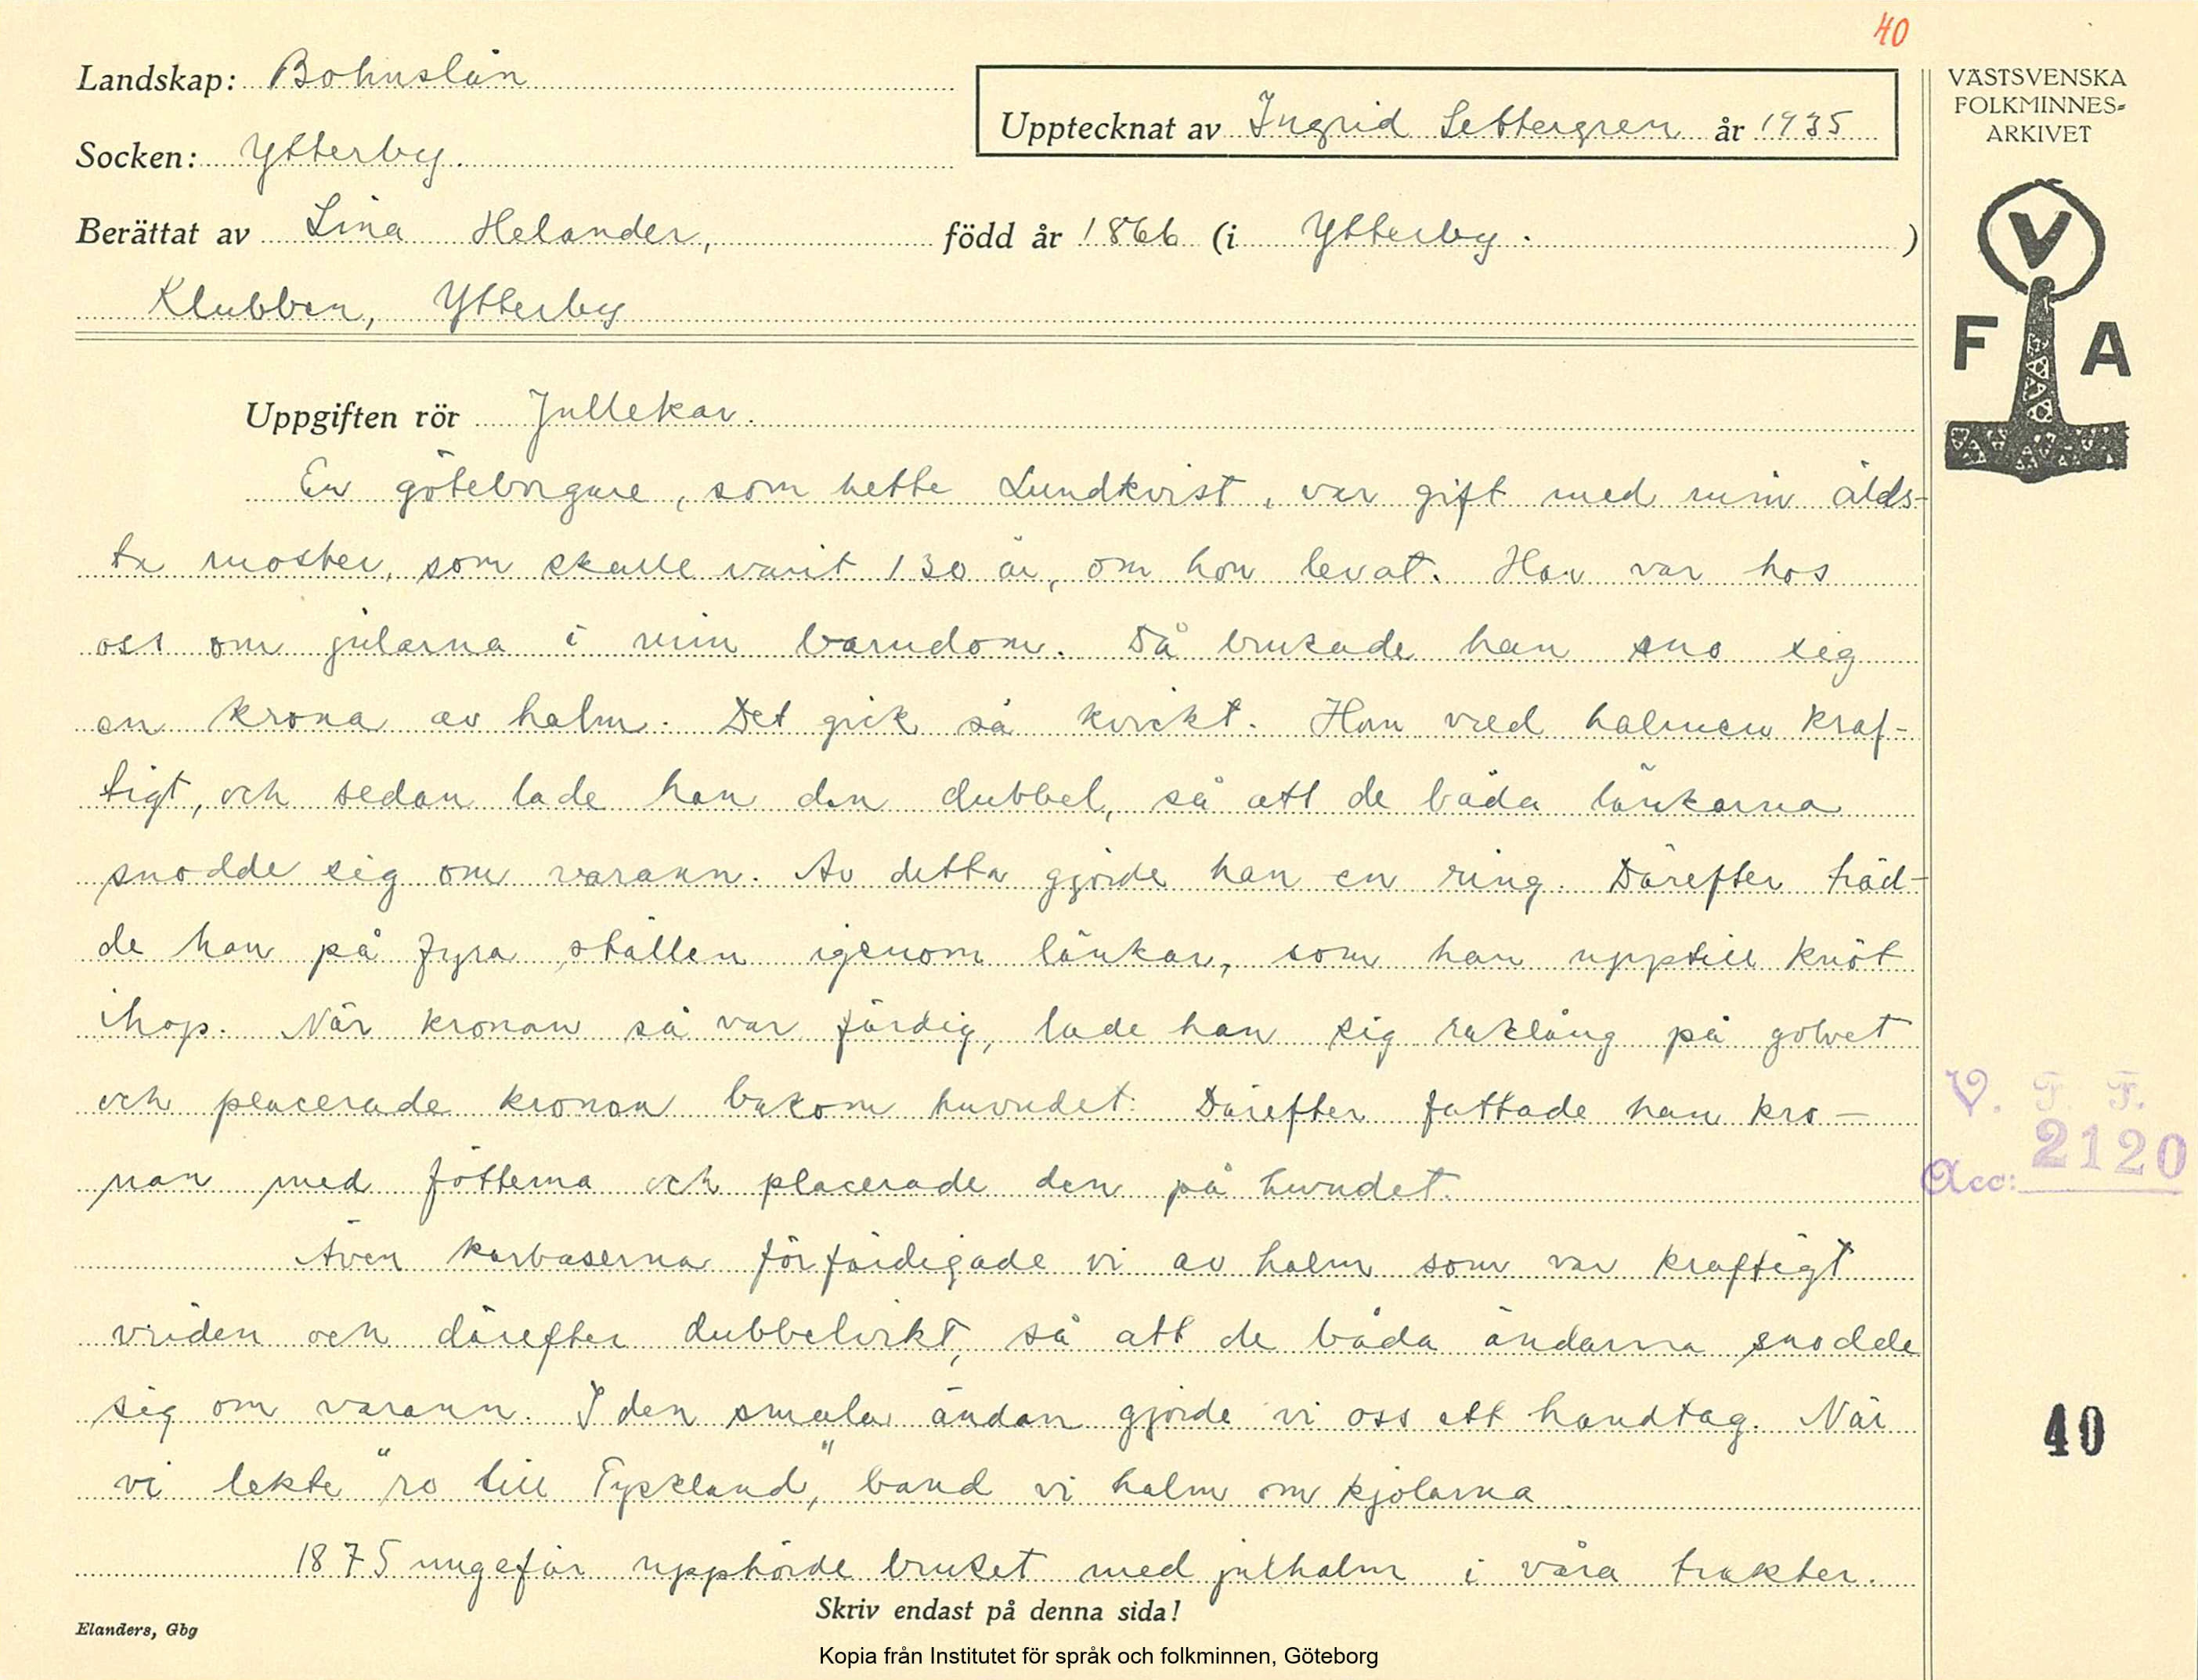 40
Landskap: Bohuslän
Upptecknat av Ingrid Settergren år 1935
Socken: Ytterby.
Berättat av Lina Helander, född år 1866 (i Ytterby. )
Klubben, Ytterby
VÄSTSVENSKA
FOLKMINNES-
ARKIVET
V
F A
Uppgiften rör Jullekar.
En göteborgare, som hette Lundkvist, var gift med min älds-
ta moster, som skulle varit 130 år, om hon levat. Han var hos
oss om jularna i min barndom. Då brukade han sno sig
en krona av halm. Det gick så kvickt. Han vred halmen kraf-
tigt, och sedan lade han den dubbel, så att de båda länkarna
snodde sig om varann. Av detta gjorde han en ring. Därefter träd-
de han på fyra ställen igenom länkar, som han upptill knöt
ihop. När kronan så var färdig, lade han sig raklång på golvet
och placerade kronan bakom huvudet. Därefter fattade han kro-
nan med fötterna och placerade den på huvudet.
Även karbaserna förfärdigade vi av halm som var kraftigt
vriden och därefter dubbelvikt, så att de båda ändarna snodde
sig om varann. I den smala ändan gjorde vi oss ett handtag. När
vi lekte "ro till Tyskland", band vi halm om kjolarna.
1875 ungefär upphörde bruket med julhalm i våra trakter.
V. F. F.
Acc: 2120
40
Skriv endast på denna sida!
Elanders, Gbg
Kopia från Institutet för språk och folkminnen, Göteborg